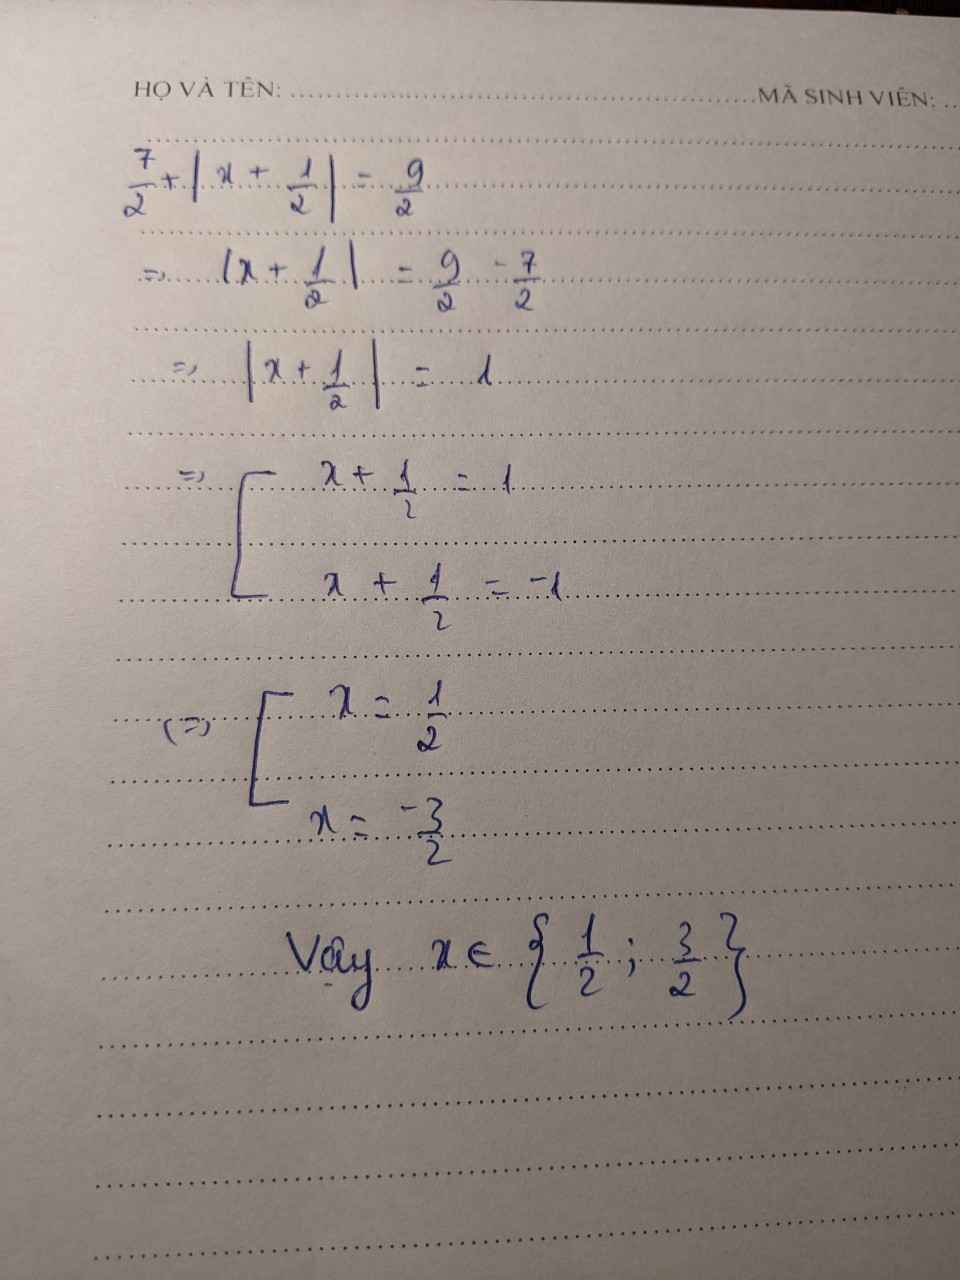 HỌ VÀ TÊN: ........ MÃ SINH VIÊN: ...
7/2 + | x + 1/2 | = 9/2
=> | x + 1/2 | = 9/2 - 7/2
=> | x + 1/2 | = 1
=> [ x + 1/2 = 1
x + 1/2 = -1
(=> [ x = 1/2
x = -3/2
Vậy x ∈ { 1/2 ; 3/2 }